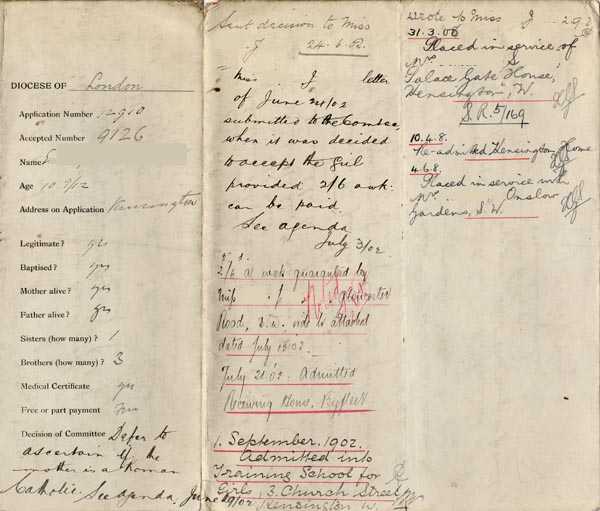 DIOCESE OF London
Application Number 12910
Accepted Number 9126
Name E
Age 10 7/12
Address on Application Kensington
Legitimate? yes
Baptised? yes
Mother alive? yes
Father alive? yes
Sisters (how many)? 1
Brothers (how many)? 3
Medical Certificate yes
Free or part payment Free
Decision of Committee Defer to
ascertain if the
mother is a Roman
Catholic. See agenda, June 19/02
Sent decision to Miss
J 24.6.02.
Miss J letter
of June 24/02
submitted to the Comtee,
when it was decided
to accept the girl
provided 2/6 a wk.
can be paid.
See agenda
July 3/02.
2/6 a week guaranteed by
Miss J, Gloucester
Road, S.W. vide to attached
dated July 18.02.
July 21.02. Admitted
Receiving Home, Byfleet
1. September. 1902.
Admitted into
Training School for
Girls, 3. Church Street,
Kensington W.
Wrote to Miss J 29.2
31.3.06
Placed in service of
Mrs S
Palace Gate House,
Kensington, W.
S.R. 5/169
10.4.8.
Re-admitted Kensington Home
4.6.8.
Placed in service with
Mrs Onslow
Gardens, S.W.